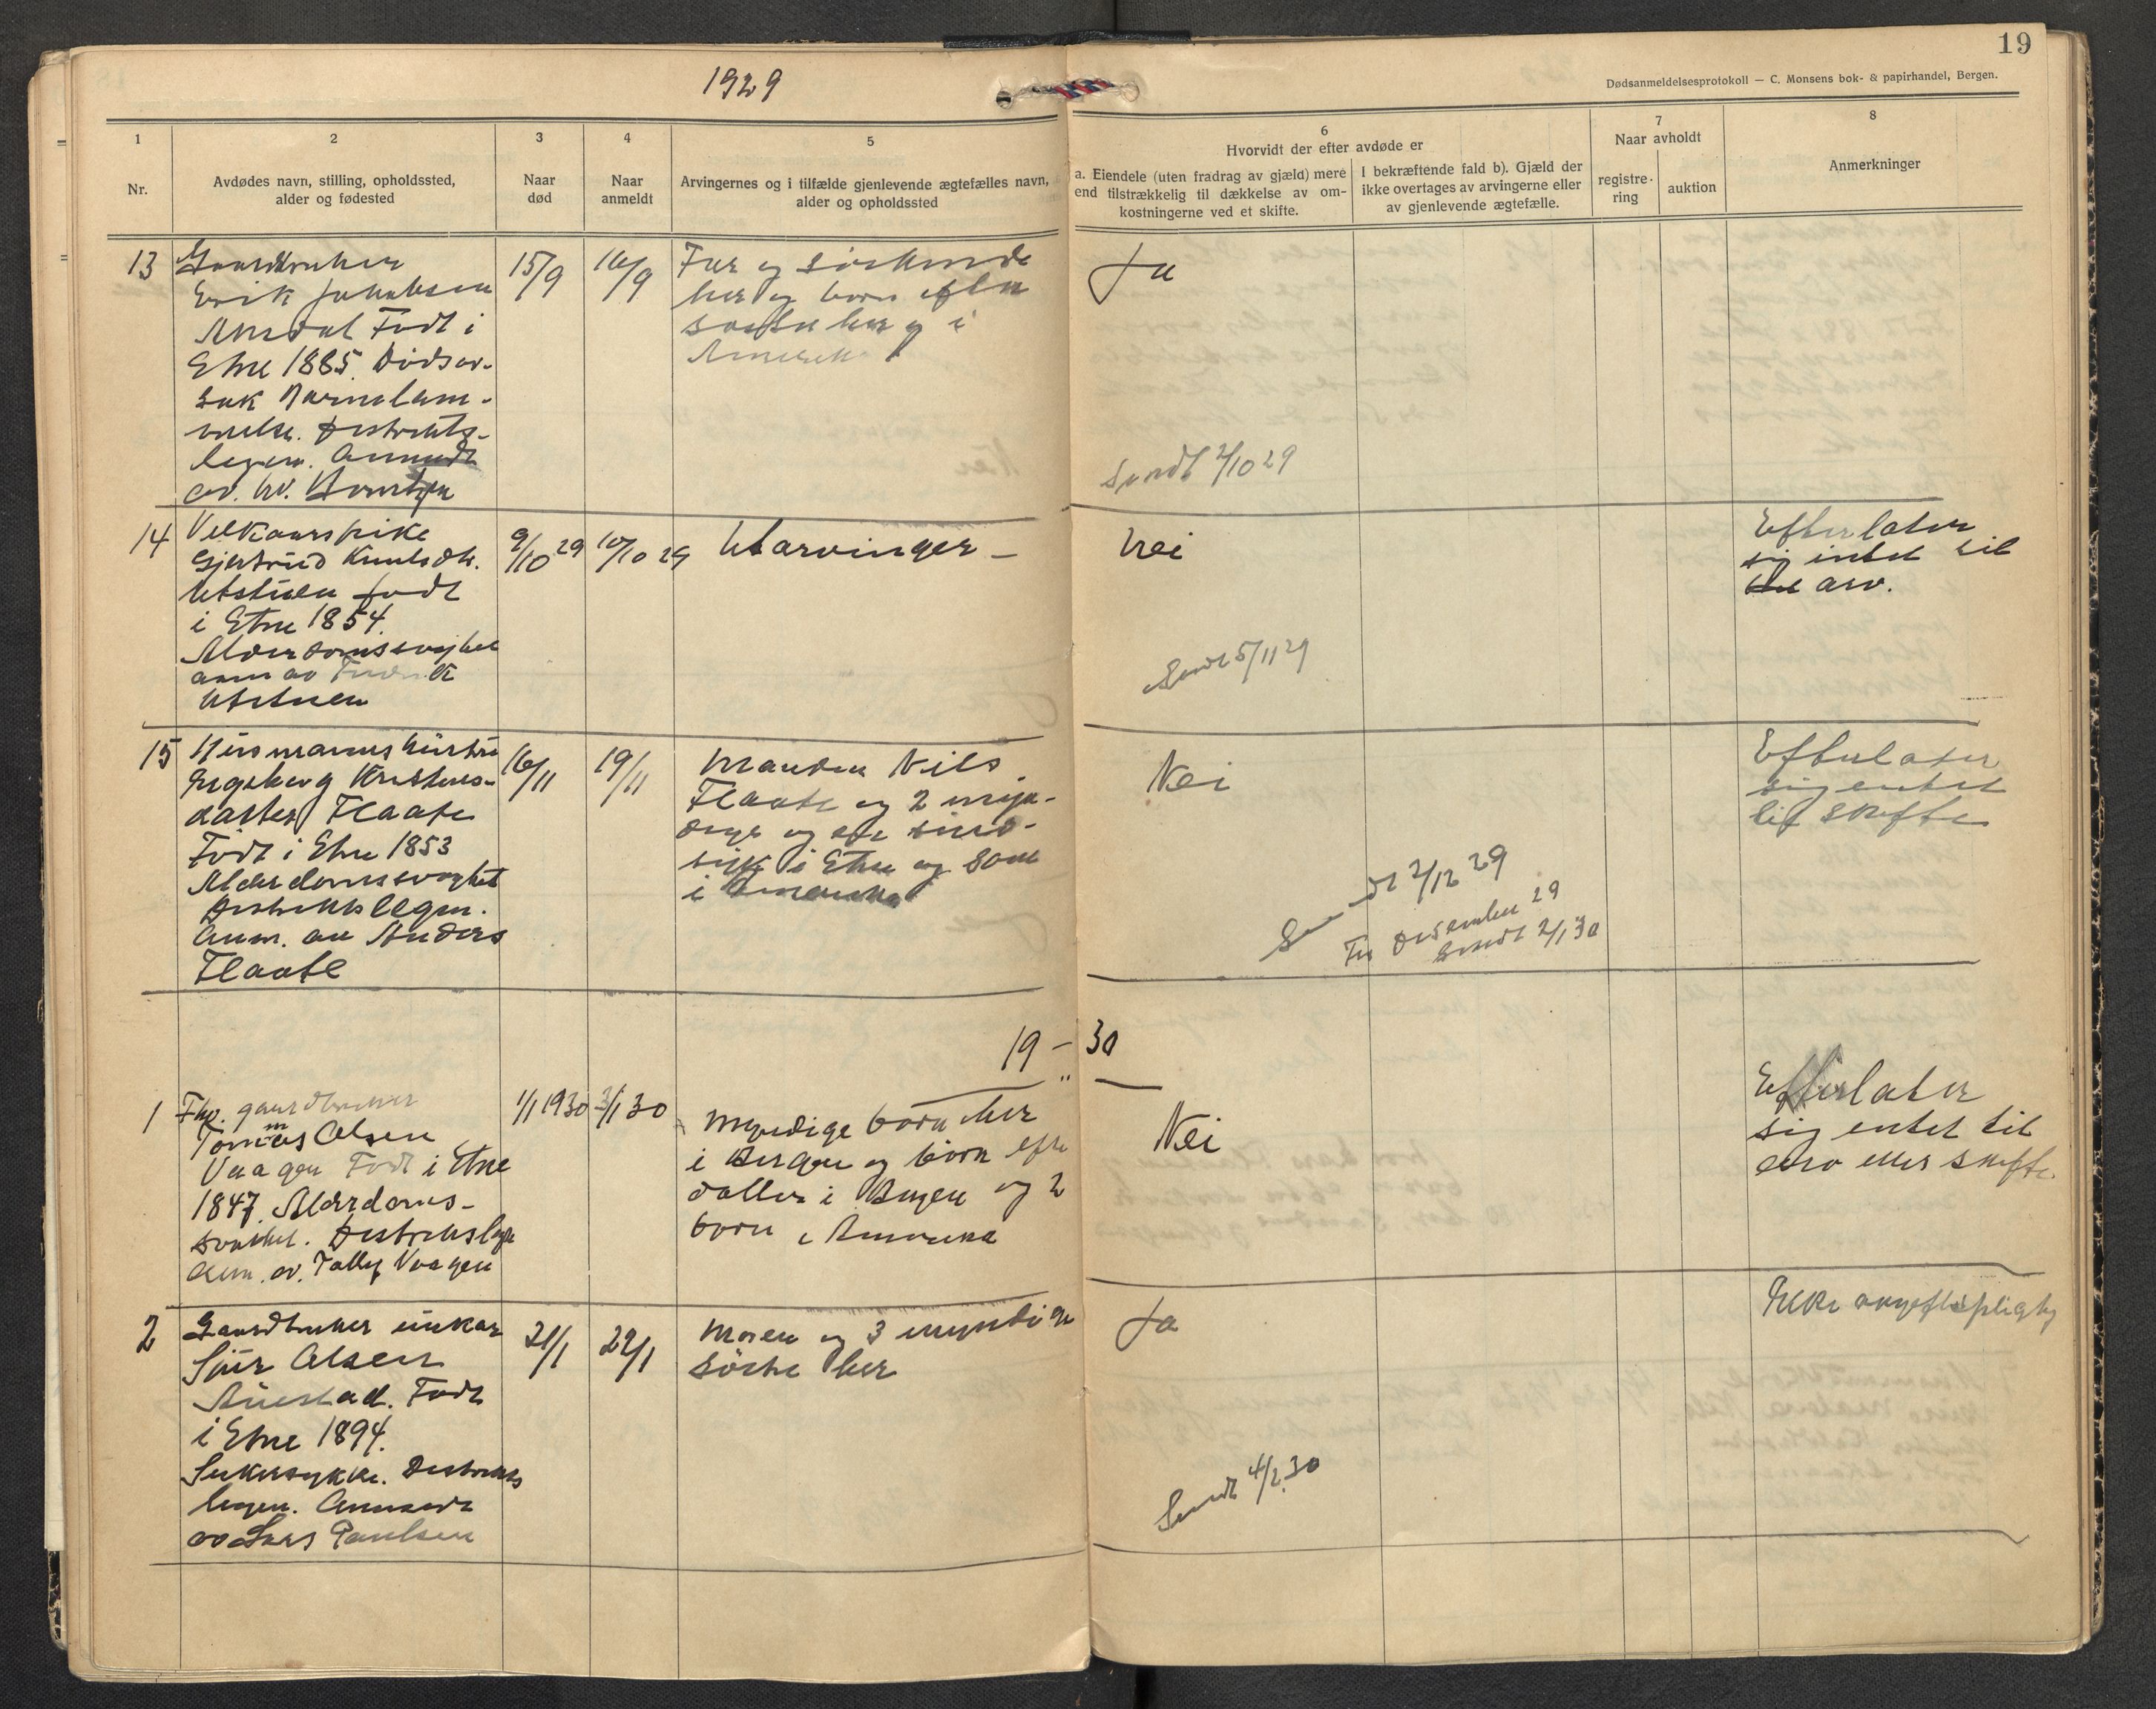 1929
19
Dødsanmeldelsesprotokoll — C. Monsens bok- & papirhandel, Bergen.
1
Nr.
2
Avdødes navn, stilling, opholdssted,
alder og fødested
3
Naar
død
4
Naar
anmeldt
5
Arvingernes og i tilfælde gjenlevende ægtefælles navn,
alder og opholdssted
6
Hvorvidt der efter avdøde er
a. Eiendele (uten fradrag av gjæld) mere
end tilstrækkelig til dækkelse av om-
kostningerne ved et skifte.
I bekræftende fald b). Gjæld der
ikke overtages av arvingerne eller
av gjenlevende ægtefælle.
7
Naar avholdt
registre-
ring
auktion
8
Anmerkninger
13
Gaardbruker
Erik Jakobsen
Amdal Født i
Etne 1885. Dødsor-
sak
Distrikts-
legen. Anmeldt
av
15/9
16/9
Far og søskende
her og born efter
søster her og i
Amerika
Ja
Sendt 2/10 29
14
Velkaarspike
Gjertrud Knutsdtr.
Utstuen født
i Etne 1854.
Alderdomssvaghet
anm av
Utstuen
9/10 29
10/10 29
Utarvinger —
Nei
Sendt 5/11 29
Efterlater
sig intet til
arv.
15
Husmannshustru
Ingeborg Kristens-
datter Flaate
Født i Etne 1853
Alderdomssvaghet
Distriktslegen.
Anm. av Anders
Flaate
16/11
19/11
Manden Nils
Flaate og 2 myn-
dige og
i Etne og
i Amerika
Nei
Sendt 2/12 29
For Desember 29
Sendt 2/1 30
Efterlater
sig entet
til skifte
19 — 30
1
Fhv. gaardbruker
Tomas Olsen
Vaagen Født i Etne
1847. Alderdoms-
svakhet. Distriktslege
Anm. av. Tolley Vaagen
1/1 1930
3/1 30
Myndige born her
i Bergen og born efter
datter i Bergen og 2
born i Amerika
Nei
Efterlater
sig entet til
arv eller skifte
2
Gaardbruker unkar
Sjur Olsen
Austad. Født
i Etne 1894.
Sukersykke. Distrikts
legen. Anmeldt
av Lars Paulsen
21/1
22/1
Moren og 3 myndige
søske her
Ja
Sendt 4/2 30
Ikke avgiftspligtig